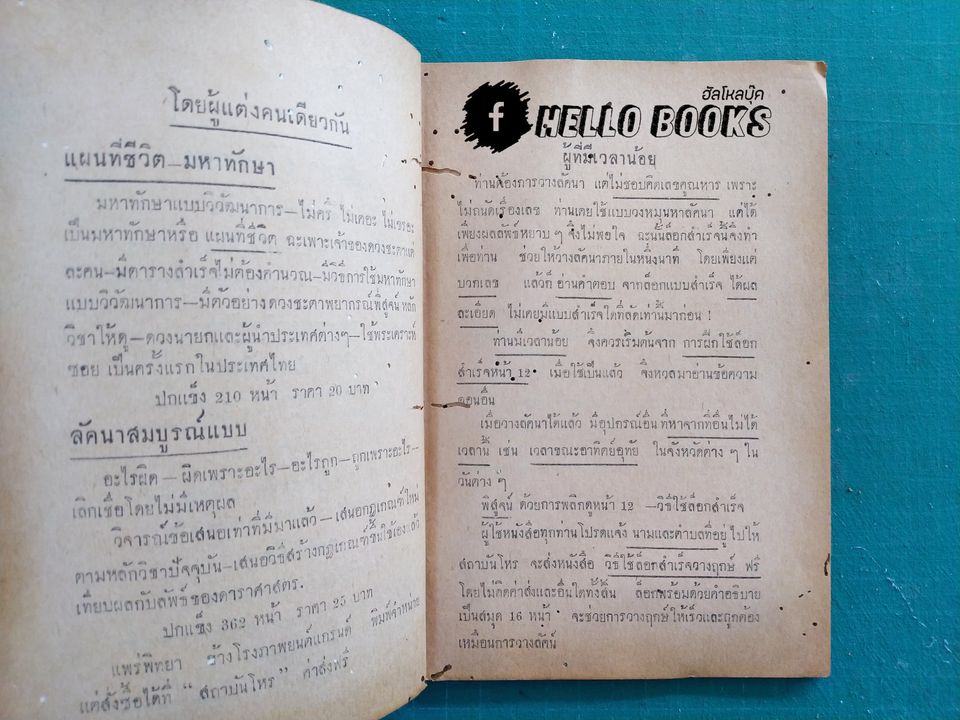 โดยผู้แต่งคนเดียวกัน
แผนที่ชีวิต—มหาทักษา
มหาทักษาแบบวิวัฒนาการ—ไม่ครึ ไม่เดอะ ไม่เรอะ
เป็นมหาทักษาหรือ แผนที่ชีวิต ฉะเพาะเจ้าของดวงชะตาแต่
ละคน—มีตารางสำเร็จไม่ต้องคำนวณ—มีวิธีการใช้มหาทักษา
แบบวิวัฒนาการ—มีตัวอย่างดวงชะตาพยากรณ์พิสูจน์หลัก
วิชาให้ดู—ดวงนายกและผู้นำประเทศต่างๆ—ใช้พระเคราะห์
ซอย เป็นครั้งแรกในประเทศไทย
ปกแข็ง 210 หน้า ราคา 20 บาท
ลัคนาสมบูรณ์แบบ
อะไรผิด—ผิดเพราะอะไร—อะไรถูก—ถูกเพราะอะไร—
เลิกเชื่อโดยไม่มีเหตุผล
วิจารณ์ข้อเสนอเท่าที่มีมาแล้ว—เสนอกฎเกณฑ์ใหม่
ตามหลักวิชาปัจจุบัน—เสนอวิธีสร้างกฎเกณฑ์ขึ้นใช้เองแล้ว
เทียบผลกับลัพธ์ของดาราศาสตร์.
ปกแข็ง 362 หน้า ราคา 25 บาท
แพร่พิทยา ข้างโรงภาพยนต์แกรนด์ พิมพ์จำหน่าย
แต่สั่งซื้อได้ที่ “ สถาบันโหร ” ค่าส่งฟรี
ฮัลโหลบุ๊ค
f HELLO BOOKS
ผู้ที่มีเวลาน้อย
ท่านต้องการวางลัคนา แต่ไม่ชอบคิดเลขคูณหาร เพราะ
ไม่ถนัดเรื่องเลข ท่านเคยใช้แบบวงหมุนหาลัคนา แต่ได้
เพียงผลลัพธ์หยาบ ๆ จึงไม่พอใจ ฉะนั้นล็อกสำเร็จนี้จึงทำ
เพื่อท่าน ช่วยให้วางลัคนาภายในหนึ่งนาที โดยเพียงแต่
บวกเลข แล้วก็ อ่านคำตอบ จากล็อกแบบสำเร็จ ได้ผล
ละเอียด ไม่เคยมีแบบสำเร็จใดที่ลัดเท่านี้มาก่อน !
ท่านมีเวลาน้อย จึงควรเริ่มต้นจาก การฝึกใช้ล็อก
สำเร็จหน้า 12 เมื่อใช้เป็นแล้ว จึงหวลมาอ่านข้อความ
ตอนอื่น
เมื่อวางลัคนาได้แล้ว มีอุปกรณ์อื่น ที่หาจากที่อื่นไม่ได้
เวลานี้ เช่น เวลาขณะอาทิตย์อุทัย ในจังหวัดต่าง ๆ ใน
วันต่าง ๆ
พิสูจน์ ด้วยการพลิกดูหน้า 12 —วิธีใช้ล็อกสำเร็จ
ผู้ใช้หนังสือทุกท่านโปรดแจ้ง นามและตำบลที่อยู่ ไปให้
สถาบันโหร จะส่งหนังสือ วิธีใช้ล็อกสำเร็จวางฤกษ์ ฟรี
โดยไม่คิดค่าส่งและอื่นใดทั้งสิ้น ล็อกพร้อมด้วยคำอธิบาย
เป็นสมุด 16 หน้า จะช่วยการวางฤกษ์ให้เร็วและถูกต้อง
เหมือนการวางลัคน์